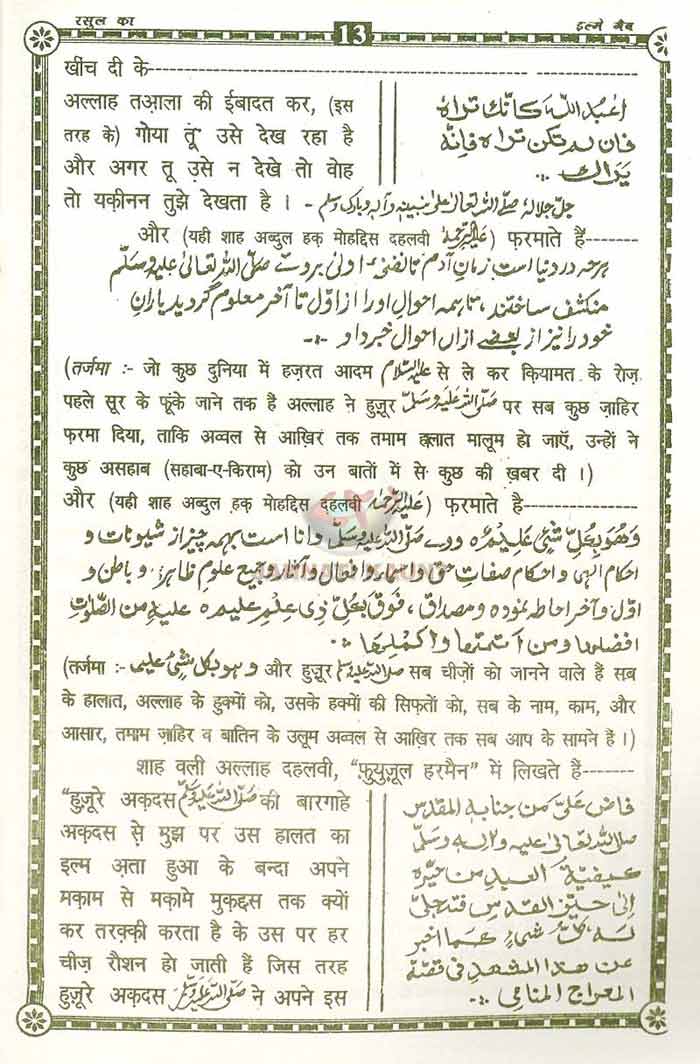 रसुल का
13
इल्मे ग़ैब
खींच दी के-
अल्लाह तआला की ईबादत कर, (इस
तरह के) गोया तूं उसे देख रहा है
और अगर तू उसे न देखे तो वोह
तो यक़ीनन तुझे देखता है ।
اعبد الله كانك تراه
فان لم تكن تراه فانه
يراك
جل جلالہ صلی اللہ تعالیٰ علیٰ نبینہ وآلہ وبارک وسلم -
और (यही शाह अब्दुल हक़ मोहद्दिस दहलवी علیہ الرحمہ) फ़रमाते हैं-
ہرچہ در دنیا است زمانِ آدم تا نفخۂ اولیٰ بروے صلی اللہ تعالیٰ علیہ وسلم
منکشف ساختند، تا ہمہ احوال اورا از اوّل تا آخر معلوم گردید یارانِ
خود را نیز از بعضے ازاں احوال خبر داد -
(तर्जमा :- जो कुछ दुनिया में हज़रत आदम علیہ السلام से ले कर कियामत के रोज़
पहले सूर के फूंके जाने तक है अल्लाह ने हुज़ूर صلی اللہ علیہ وسلم पर सब कुछ ज़ाहिर
फ़रमा दिया, ताकि अव्वल से आख़िर तक तमाम हालात मालूम हो जाएँ, उन्हों ने
कुछ असहाब (सहाबा-ए-किराम) को उन बातों में से कुछ की ख़बर दी ।)
और (यही शाह अब्दुल हक़ मोहद्दिस दहलवी علیہ الرحمہ) फ़रमाते है-
وهو بكل شئ عليم ه ووے صلی اللہ علیہ وسلم دانا است بہمہ چیز از شیونات و
احکام الٰہی و احکام صفاتِ حق و اسماء و افعال و آثار و جمیع علومِ ظاہر و باطن و
اوّل و آخر احاطہ نمودہ و مصداق، فوق بكل ذی علم علیم ه علیہ من الصلوٰت
افضلہا و من اتمتہا و اکملہا
(तर्जमा :- وهو بكل شئ عليم और हुज़ूर صلی اللہ علیہ وسلم सब चीज़ों को जानने वाले हैं सब
के हालात, अल्लाह के हुक्मों को, उसके हक्मों की सिफ़तों को, सब के नाम, काम, और
आसार, तमाम ज़ाहिर व बातिन के उलूम अव्वल से आख़िर तक सब आप के सामने हैं ।)
शाह वली अल्लाह दहलवी, "फ़ुयुज़ूल हरमैन" में लिखते हैं-
"हुज़ूरे अक़दस صلی اللہ علیہ وسلم की बारगाहे
अक़दस से मुझ पर उस हालत का
इल्म अता हुआ के बन्दा अपने
मक़ाम से मक़ामे मुक़द्दस तक क्यों
कर तरक़्की करता है के उस पर हर
चीज़ रौशन हो जाती हैं जिस तरह
हुज़ूरे अक़दस صلی اللہ علیہ وسلم ने अपने इस
فاض علىّ من جنابه المقدس
صلى الله تعالى عليه واله وسلم
عيفية العبد من حيزه
الى حيز القدس فتجلىّ
له كل شئ كما اخبر
عن هذا المشهد فى قصّة
المعراج المنامى